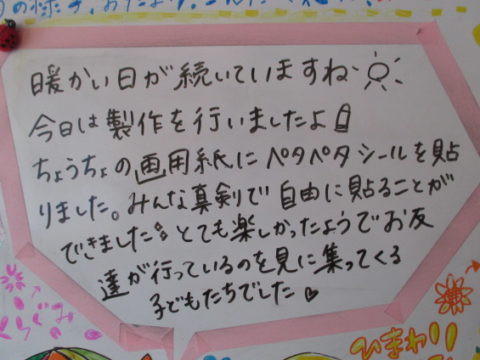 暖かい日が続いていますね
今日は製作を行いましたよ
ちょうちょの画用紙にペタペタシールを貼
りました。みんな真剣で自由に貼ることが
できました。とても楽しかったようでお友
達が行っているのを見に集ってくる
子どもたちでした♡
くらぐみ
ひまわり